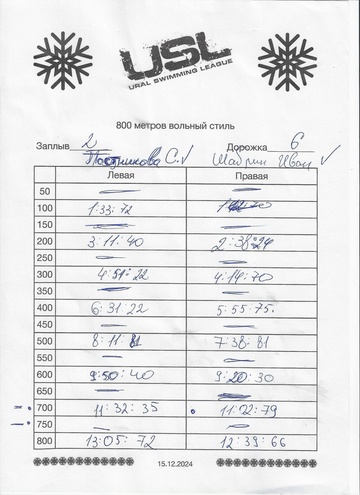 USL
URAL SWIMMING LEAGUE
800 метров вольный стиль
Заплыв 2 Дорожка 6
Постникова С. √ Шабрин Иван √
Левая Правая
50 — —
100 1:33:72
150 — —
200 3:11:40 2:38:24
250 — —
300 4:51:22 4:14:70
350 — —
400 6:31:22 5:55:75.
450 — —
500 8:11:81 7:38:81
550 — —
600 9:50:40 9:20:30
650 — —
700 11:32:35 11:02:79
750 — —
800 13:05:72 12:39:66
15.12.2024